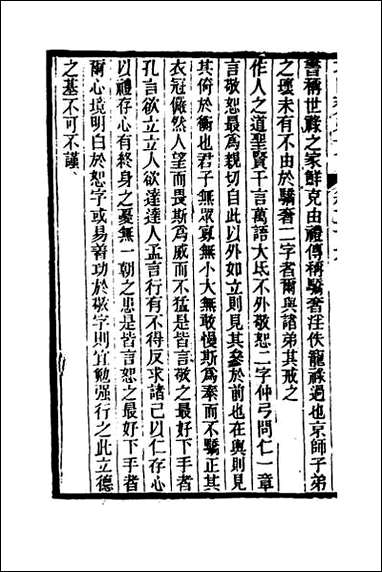 書稱世祿之家鮮克由禮傳稱驕奢淫佚寵祿過也京師子弟
之壞未有不由於驕奢二字者爾與諸弟其戒之
作人之道聖賢千言萬語大抵不外敬恕二字仲弓問仁一章
言敬恕最爲親切自此以外如立則見其參於前也在輿則見
其倚於衡也君子無眾寡無小大無敢慢斯爲泰而不驕正其
衣冠儼然人望而畏斯爲威而不猛是皆言敬之最好下手者
孔言欲立立人欲達達人孟言行有不得反求諸己以仁存心
以禮存心有終身之憂無一朝之患是皆言恕之最好下手者
爾心境明白於恕字或易著功於敬字則宜勉强行之此立德
之基不可不謹